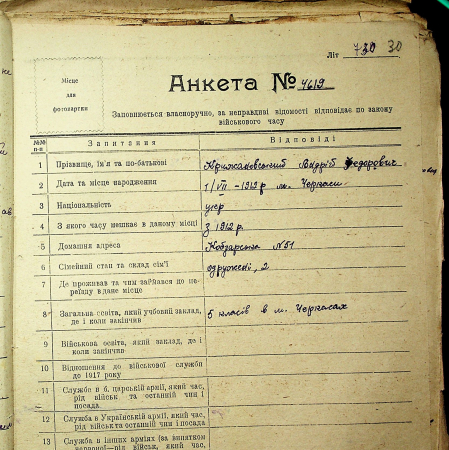 Літ 730 30
Місце
для
фотокартки
Анкета № 4619
Заповнюється власноручно, за неправливі відомості відповідає по закону
військового часу
№№ п-п Запитання Відповіді
1 Прізвище, ім'я та по-батькові Крижановський Андрій Федорович
2 Дата та місце народження 1/VII - 1912 р. м. Черкаси
3 Національність укр
4 З якого часу мешкає в даному місці з 1912 р.
5 Домашня адреса Кобзарська №51
6 Сімейний стан та склад сім'ї одружені, 2
7 Де проживав та чим займався до пе-
реїзду в дане місце
8 Загальна освіта, який учбовий заклад,
де і коли закінчив 5 класів в м. Черкасах
9 Військова освіта, який заклад, де і
коли закінчив
10 Відношення до військової служби
до 1917 року
11 Служба в б. царській армії, який час,
рід військ та останній чин і
посада
12 Служба в Українській армії, який час,
рід військ та останній чин і посада
13 Служба в інших арміях (за винятком
червоної—рід військ, який час,